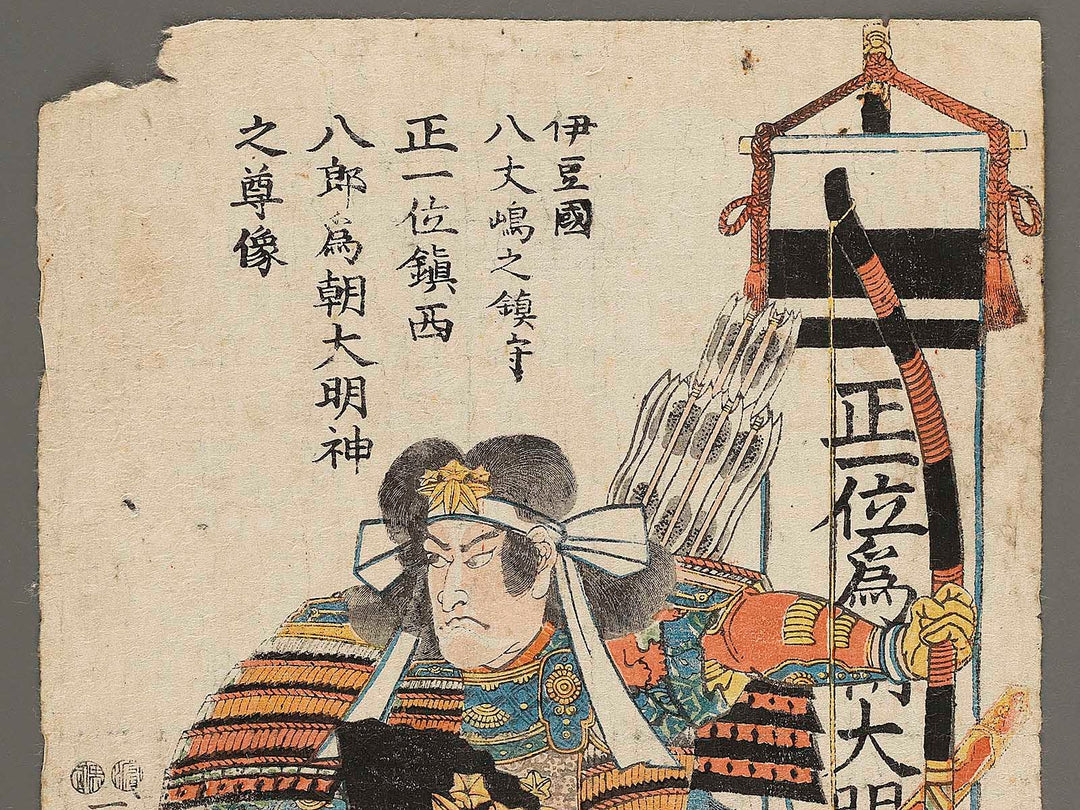 伊豆國
八丈嶋之鎮守
正一位鎭西
八郎爲朝大明神
之尊像
正一位爲朝大明